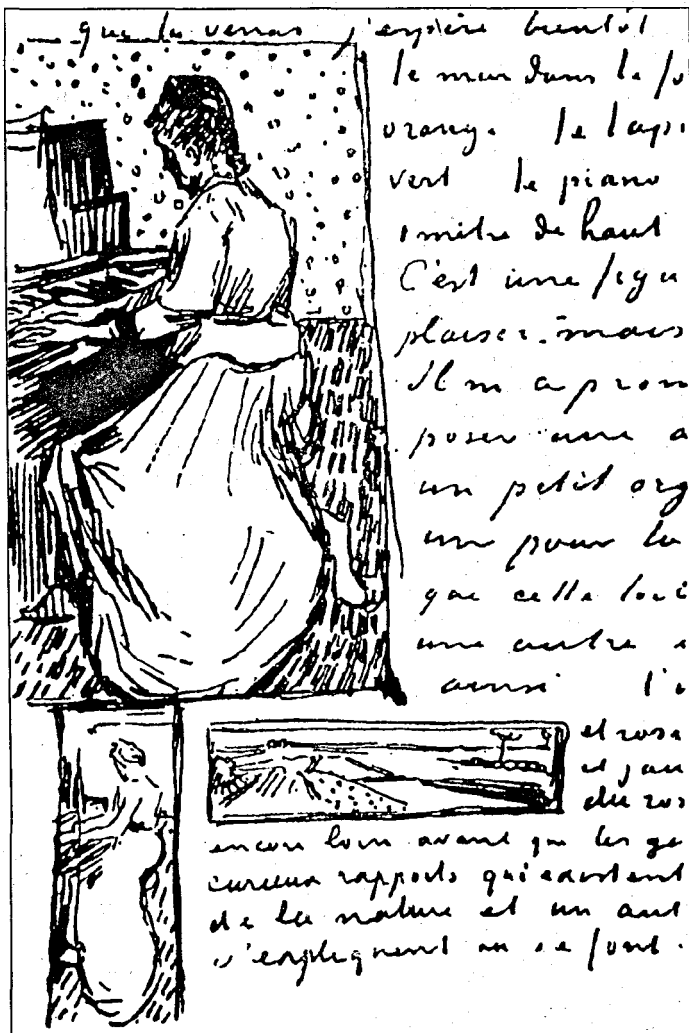 que tu verras j'espère bientôt
le mur dans le fo
orange. le tapi
vert le piano
1 mètre de haut
C'est une figu
plaisir. mais
Il m'a prom
poser une a
un petit org
un pour toi
que cette toi
une autre e
ainsi l'
et rose
et jau
du ros
encore loin avant que les ge
curieux rapports qui existent
de la nature et un aut
s'expliquent ou se font.